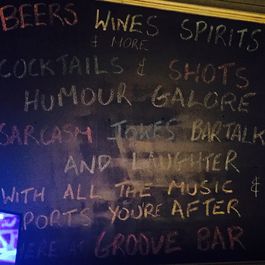 BEERS WINES SPIRITS
& MORE
COCKTAILS & SHOTS
HUMOUR GALORE
SARCASM JOKES BARTALK
AND LAUGHTER
WITH ALL THE MUSIC &
PORTS YOU'RE AFTER
GROOVE BAR